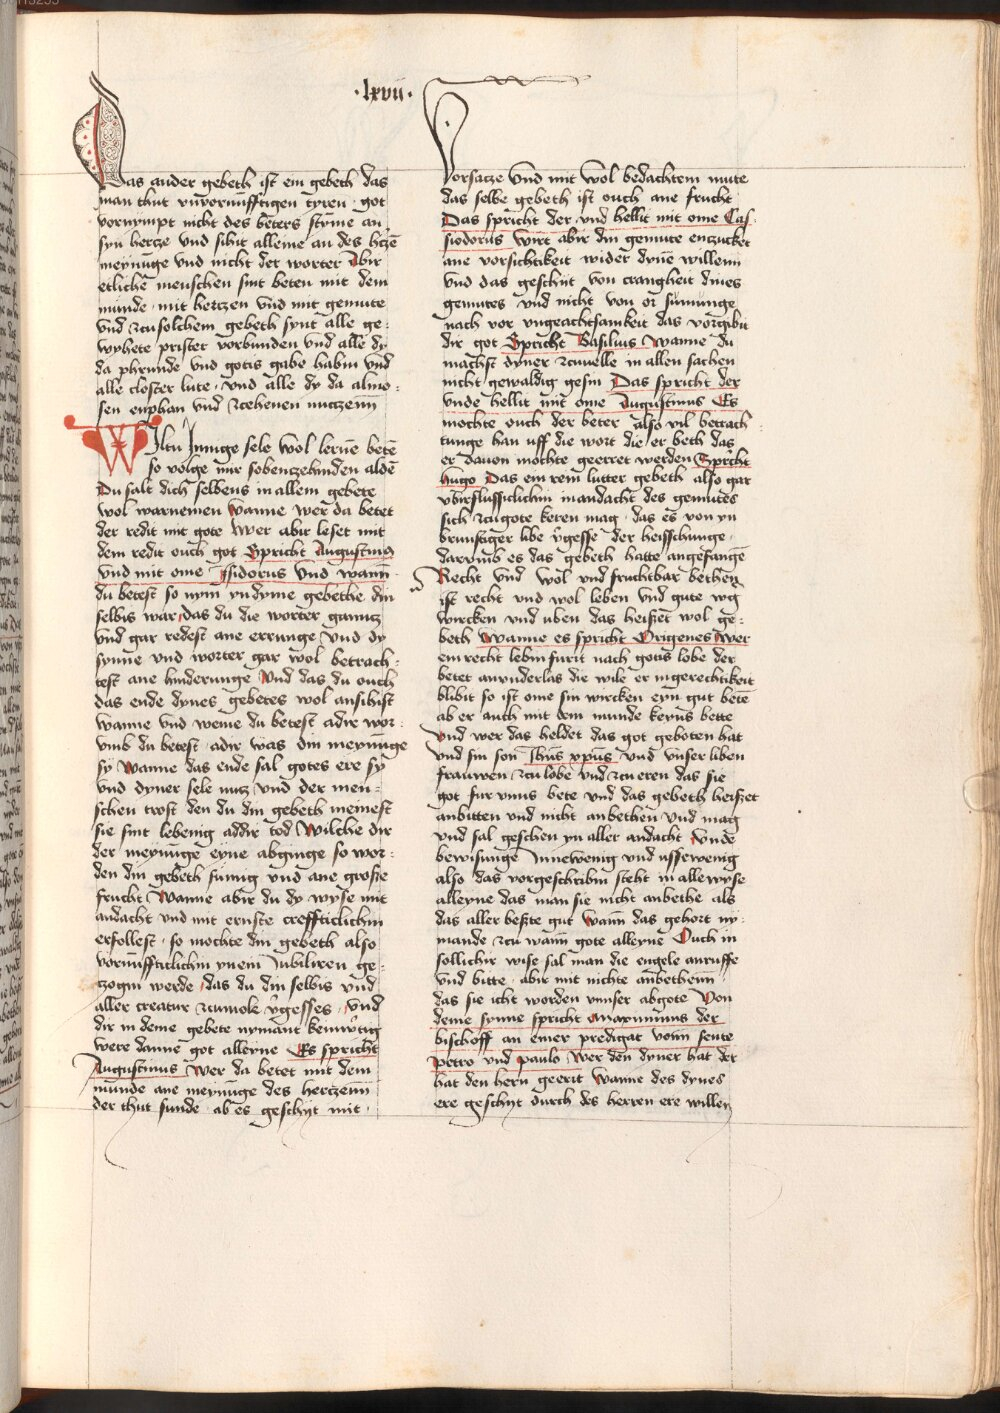 ·lxvii·
Das ander gebeth ist ein gebeth das
man thut vnvornunfftigen tyren · got
vornympt nicht des beters styme an
syn hertze vnd sihit alleine an des htzē
meynūge vnd nicht der worter Abir
etlichē menschen sint beten mit dem
munde · mit hertzen vnd mit gemute
vnd zcu solchem gebeth synt alle ge-
wyhete prister vorbunden vnd alle dy
da phrunde vnd gotis gabe habin vnd
alle closter lute · vnd alle dy da almo-
sen enphan vnd zcehenen nutczenn
Wiltu Innige sele wol lernē betē
so volge mir sobenczehnden aldē
Du salt dich selbens in allem gebete
wol warnemen wanne wer da betet
der redit mit gote Wer abir leset mit
dem redit ouch got Spricht Augustinus
vnd mit ome Isidorus vnd wann
du betest so nym yn dyme gebethe din
selbis war, das du die worter gantz
vnd gar redest ane errunge vnd dy
synne vnd worter gar wol betrach-
test ane hinderunge vnd das du ouch
das ende dynes gebetes wol ansihist
wanne vnd weme du betest adir wor-
vmb du betest · adir was din meynūge
sy wanne das ende sal gotes ere sy
vnd dyner sele nutz vnd der men-
schen trost den du din gebeth meinest
sie sint lebenig addir tod Wilche dir
der meynūge eyne abginge so wor-
den din gebeth sumig vnd ane grosse
frucht Wanne abir du dy wyse mit
andacht vnd mit ernste creffticlichin
erfollest · so mochte din gebeth also
vornuffticlichin ynem Jubiliren ge-
tzogin werde, das du din selbis vnd
aller creatur zcumole vgesses · vnd
dir in deme gebete nymant kenwtig
were danne got alleyne Es spricht
Augustinus Wer da betet mit dem
munde ane meynūge des hertzenn
der thut sunde · ab es geschyt mit ·
vorsatze vnd mit wol bedachtem mute
das selbe gebeth ist ouch ane frucht
Das spricht der vnd hellit mit ome Cas-
siodorus wirt abir din gemute entzucket
ane vorsichtikeit wider dynē willenn
vnd das geschyt von crangheit dines
gemutes vnd nicht von or sumunge
nach vor vngeachtsamkeit das vorgibit
dir got Spricht Basilius Wanne du
machst dyner zcuuelle in allen sachen
nicht gewaldig gesin Das spricht der
vnde hellit mit ome Augustinus Es
mochte ouch der beter also vil betrach-
tunge han uff die wort die er beth das
er dauon mochte geerret werden Spricht
hugo Das ein rein lutter gebeth also gar
vbirflussiclichin in andacht des gemutes
sich zcu gote keren mag · das es von yn
brunstiger libe vgesse der heisschunge ·
darvmb es das gebeth hatte angefangē
Recht vnd wol vnd fruchtbar bethen
ist recht vnd wol leben vnd gute wg
wircken vnd uben das heisset wol ge-
beth Wanne es spricht Origenes Wer
ein recht lebin furit nach gotis lobe der
betet an vnderlas die wile er in gerechtikeit
blibit so ist ome sin wircken eyn gut betē
ab er auch mit dem munde keyns bette
vnd wer das heldet das got geboten hat
vnd sin son Ihūs xpūs vnd vnser liben
frauwen zcu lobe vnd zcu eren das sie
got fur vnns bete vnd das gebeth heisset
anbitten vnd nicht anbethen vnd mag
vnd sal geschen yn aller andacht vnde
bewisunge Innewenig vnd ussewenig
also das vorgeschribin steht in alle wyse
alleyne das man sie nicht anbethe als
das aller beste gut Wann das gehort ny-
mande zcu wann gote alleyne Ouch in
sollichir wise sal man die engele anruffe
vnd bitte · abir mit nichte anbethenn ·
das sie icht worden vnnser abgote Von
deme synne spricht Maximinus der
bischoff an einer predigat vonn sente
petro vnd paulo Wer den dyner hat der
hat den hern geerit Wanne des dynes
ere geschyt durch des herren ere willen